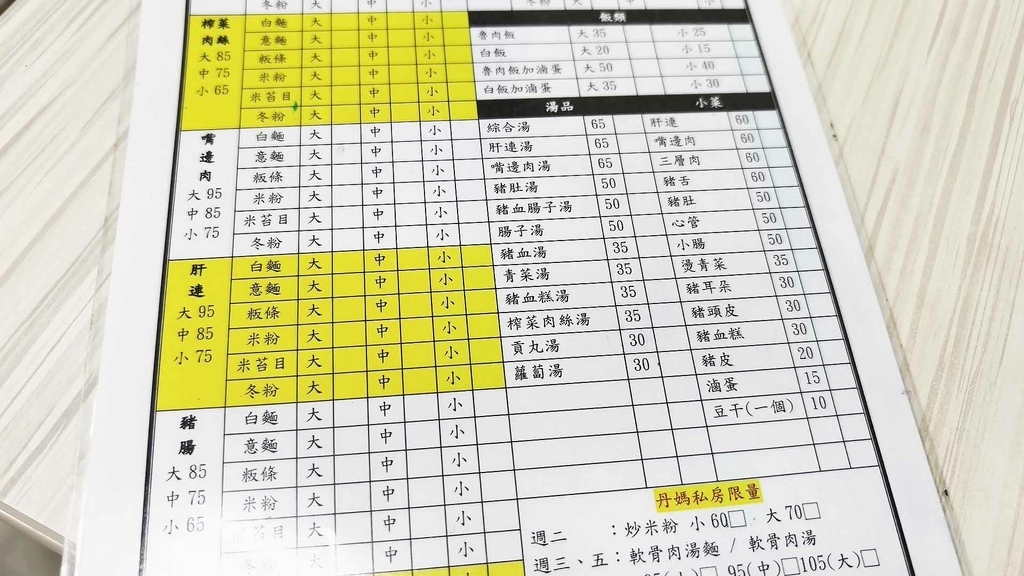 冬粉 大 中 小
榨菜肉絲 大 85 中 75 小 65
白麵 大 中 小
意麵 大 中 小
粄條 大 中 小
米粉 大 中 小
米苔目 大 中 小
冬粉 大 中 小
嘴邊肉 大 95 中 85 小 75
白麵 大 中 小
意麵 大 中 小
粄條 大 中 小
米粉 大 中 小
米苔目 大 中 小
冬粉 大 中 小
肝連 大 95 中 85 小 75
白麵 大 中 小
意麵 大 中 小
粄條 大 中 小
米粉 大 中 小
米苔目 大 中 小
冬粉 大 中 小
豬腸 大 85 中 75 小 65
白麵 大 中 小
意麵 大 中 小
粄條 大 中 小
米粉 大 中 小
米苔目 大 中 小
冬粉 大 中 小
飯類
魯肉飯 大 35 小 25
白飯 大 20 小 15
魯肉飯加滷蛋 大 50 小 40
白飯加滷蛋 大 35 小 30
湯品
綜合湯 65
肝連湯 65
嘴邊肉湯 65
豬肚湯 50
豬血腸子湯 50
腸子湯 50
豬血湯 35
青菜湯 35
豬血糕湯 35
榨菜肉絲湯 35
貢丸湯 30
蘿蔔湯 30
小菜
肝連 60
嘴邊肉 60
三層肉 60
豬舌 60
豬肚 50
心管 50
小腸 50
燙青菜 35
豬耳朵 30
豬頭皮 30
豬血糕 30
豬皮 20
滷蛋 15
豆干(一個) 10
丹媽私房限量
週二 :炒米粉 小 60□ 大 70□
週三、五:軟骨肉湯麵 / 軟骨肉湯
95(中)□105(大)□